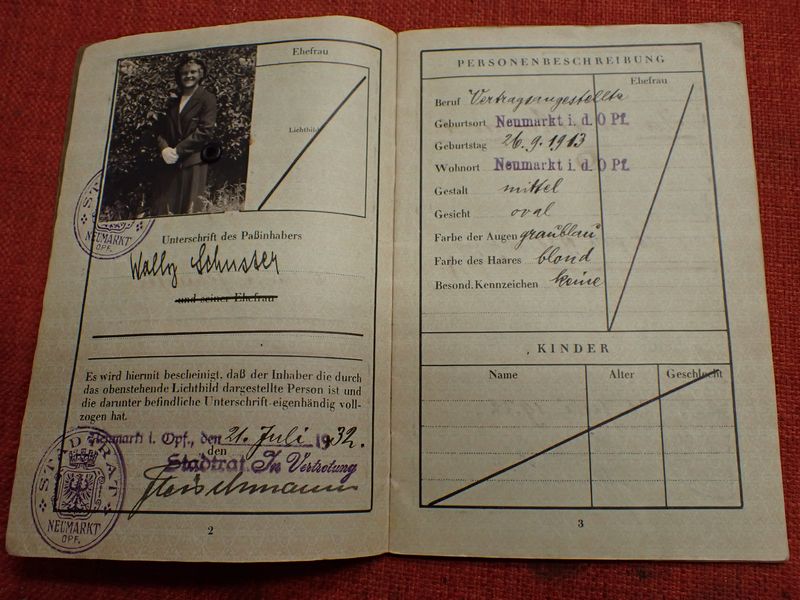 Ehefrau
Lichtbild
STADTRAT
NEUMARKT
OPF.
Unterschrift des Paßinhabers
Wally Schuster
und seiner Ehefrau
Es wird hiermit bescheinigt, daß der Inhaber die durch
das obenstehende Lichtbild dargestellte Person ist und
die darunter befindliche Unterschrift eigenhändig voll-
zogen hat.
Neumarkt i. Opf., den 21. Juli 1932.
den
Stadtrat. In Vertretung
Fleischmann
STADTRAT
NEUMARKT
OPF.
2
PERSONENBESCHREIBUNG
Ehefrau
Beruf Vertragsangestellte
Geburtsort Neumarkt i. d. O Pf.
Geburtstag 26.9.1913
Wohnort Neumarkt i. d. O Pf.
Gestalt mittel
Gesicht oval
Farbe der Augen graublau
Farbe des Haares blond
Besond. Kennzeichen keine
KINDER
Name Alter Geschlecht
3